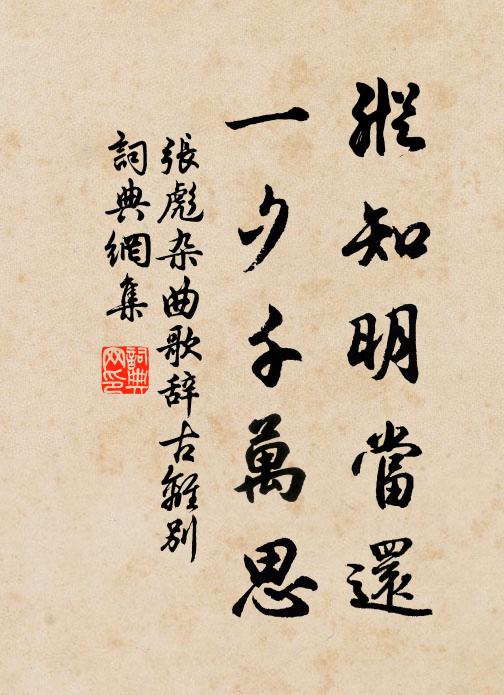 縱知明當還
一夕千萬思
張彪杂曲歌辞古離别
詞典網集
詞典网印